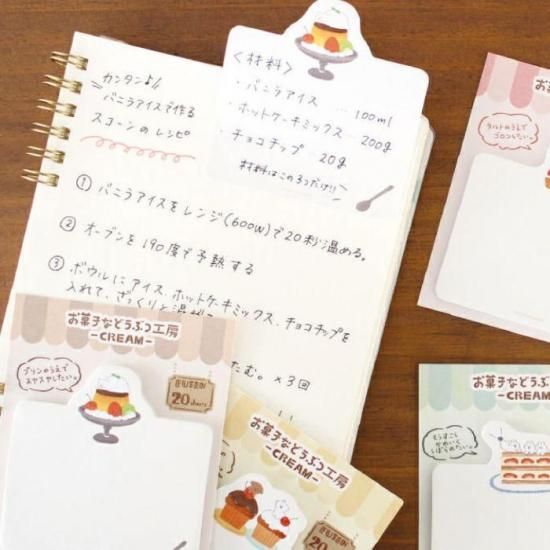 カンタン♪
バニラアイスで作る
スコーンのレシピ
〈材料〉
・バニラアイス … 100ml
・ホットケーキミックス … 200g
・チョコチップ … 20g
材料はこの3つだけ!!
① バニラアイスをレンジ(600W)で20秒温める。
② オーブンを190度で予熱する
③ ボウルにアイス、ホットケーキミックス、チョコチップを
入れて、ざっくりと混ぜ
たむ。×3回
お菓子などうぶつ工房
-CREAM-
プリンのうえで
スヤスヤしたい。
20 sheets
お菓子などうぶつ工房
-CREAM-
お菓
タルトのうえで
ゴロゴロしたい。
お菓子などうぶつ工房
-CREAM-
もうすこし